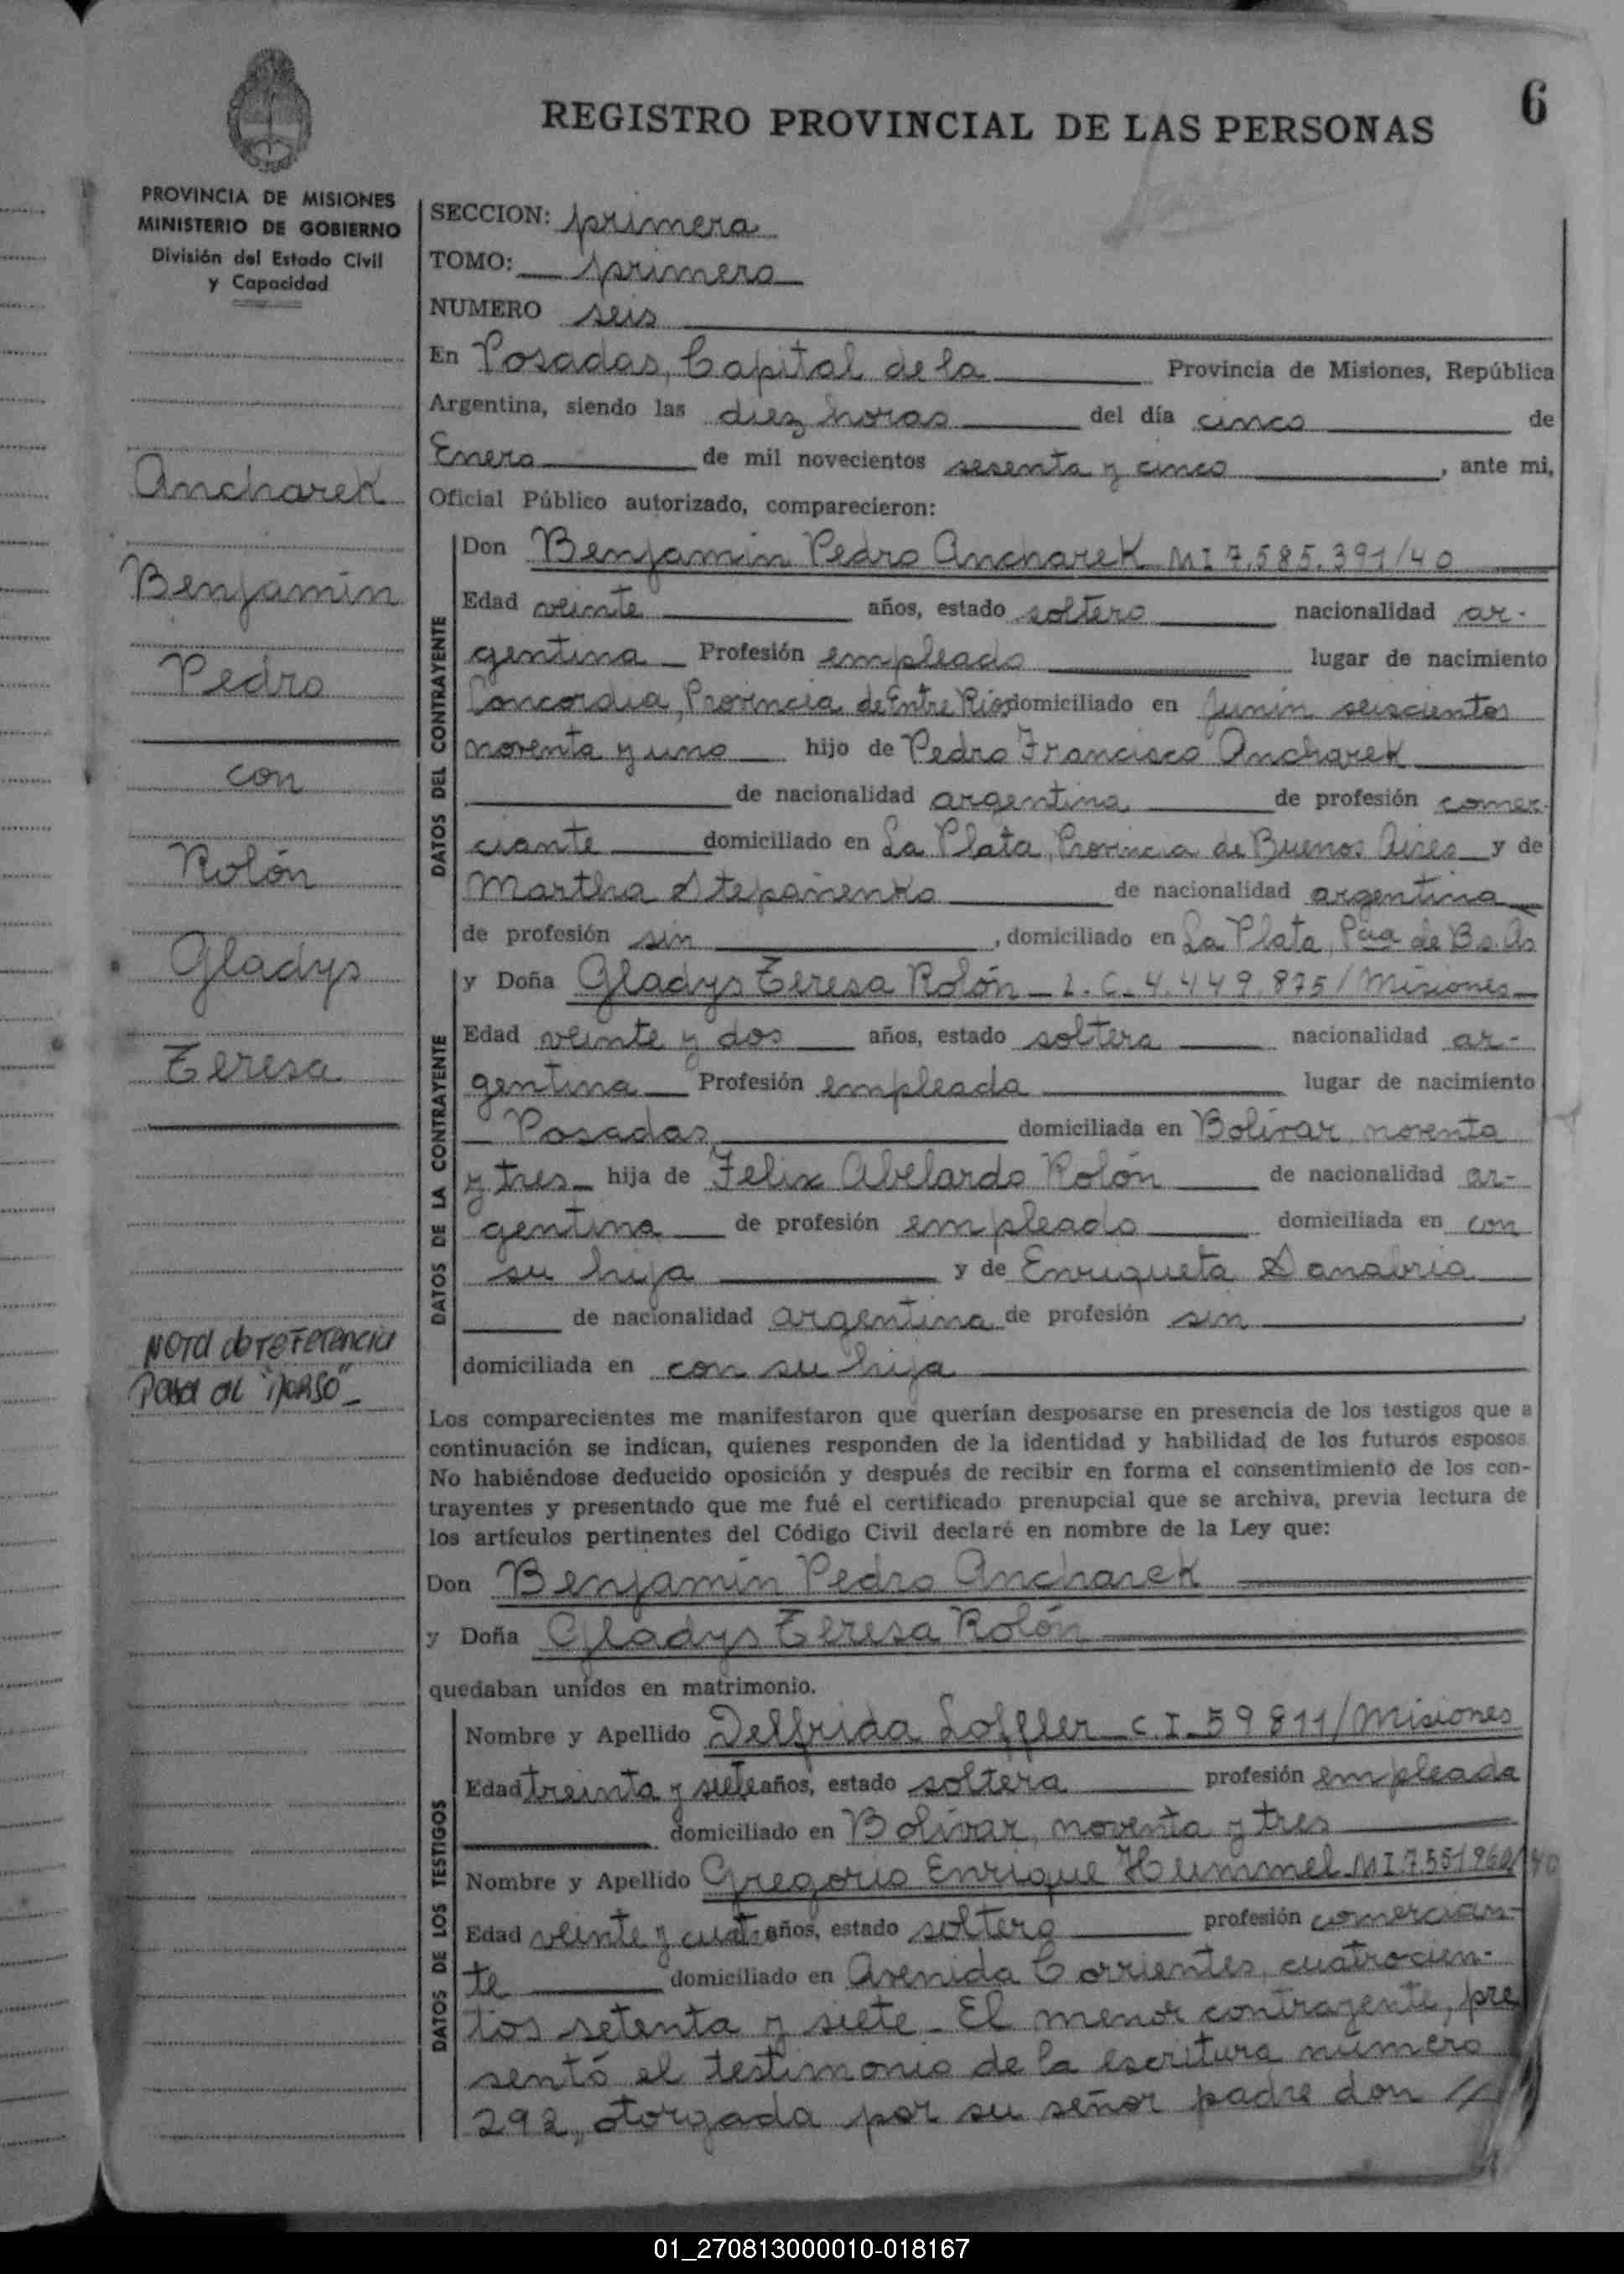 6
REGISTRO PROVINCIAL DE LAS PERSONAS
PROVINCIA DE MISIONES
MINISTERIO DE GOBIERNO
División del Estado Civil
y Capacidad
Ancharek
Benjamin
Pedro
con
Rolón
Gladys
Teresa
Nota de referencia
pasa al "dorso"_
SECCION: primera
TOMO: primero
NUMERO seis
En Posadas, Capital de la Provincia de Misiones, República
Argentina, siendo las diez horas del día cinco de
Enero de mil novecientos sesenta y cinco, ante mi,
Oficial Público autorizado, comparecieron:
DATOS DEL CONTRAYENTE
Don Benjamin Pedro Ancharek MI 7.585.391/40
Edad veinte años, estado soltero nacionalidad ar-
gentina Profesión empleado lugar de nacimiento
Concordia, Provincia de Entre Rios domiciliado en Junin seiscientos
noventa y uno hijo de Pedro Francisco Ancharek
de nacionalidad argentina de profesión comer-
ciante domiciliado en La Plata, Provincia de Buenos Aires y de
Martha Stepañenko de nacionalidad argentina
de profesión sin, domiciliado en La Plata, Pcia de Bs. As
DATOS DE LA CONTRAYENTE
y Doña Gladys Teresa Rolón - L. C. 4.449.875/Misiones
Edad veinte y dos años, estado soltera nacionalidad ar-
gentina Profesión empleada lugar de nacimiento
Posadas domiciliada en Bolívar noventa
y tres hija de Felix Abelardo Rolón de nacionalidad ar-
gentina de profesión empleado domiciliada en con
su hija y de Enriqueta Sanabria
de nacionalidad argentina de profesión sin,
domiciliada en con su hija
Los comparecientes me manifestaron que querían desposarse en presencia de los testigos que a
continuación se indican, quienes responden de la identidad y habilidad de los futuros esposos
No habiéndose deducido oposición y después de recibir en forma el consentimiento de los con-
trayentes y presentado que me fué el certificado prenupcial que se archiva, previa lectura de
los artículos pertinentes del Código Civil declaré en nombre de la Ley que:
Don Benjamin Pedro Ancharek
y Doña Gladys Teresa Rolón
quedaban unidos en matrimonio.
DATOS DE LOS TESTIGOS
Nombre y Apellido Delfrida Loffler - C. I. 59811/Misiones
Edad treinta y siete años, estado soltera profesión empleada
domiciliado en Bolívar, noventa y tres
Nombre y Apellido Gregorio Enrique Hummel MI 7551960/40
Edad veinte y cuatro años, estado soltero profesión comercian-
te domiciliado en Avenida Corrientes, cuatrocien-
tos setenta y siete - El menor contrayente, pre
sentó el testimonio de la escritura número
292, otorgada por su señor padre don //
01_270813000010-018167